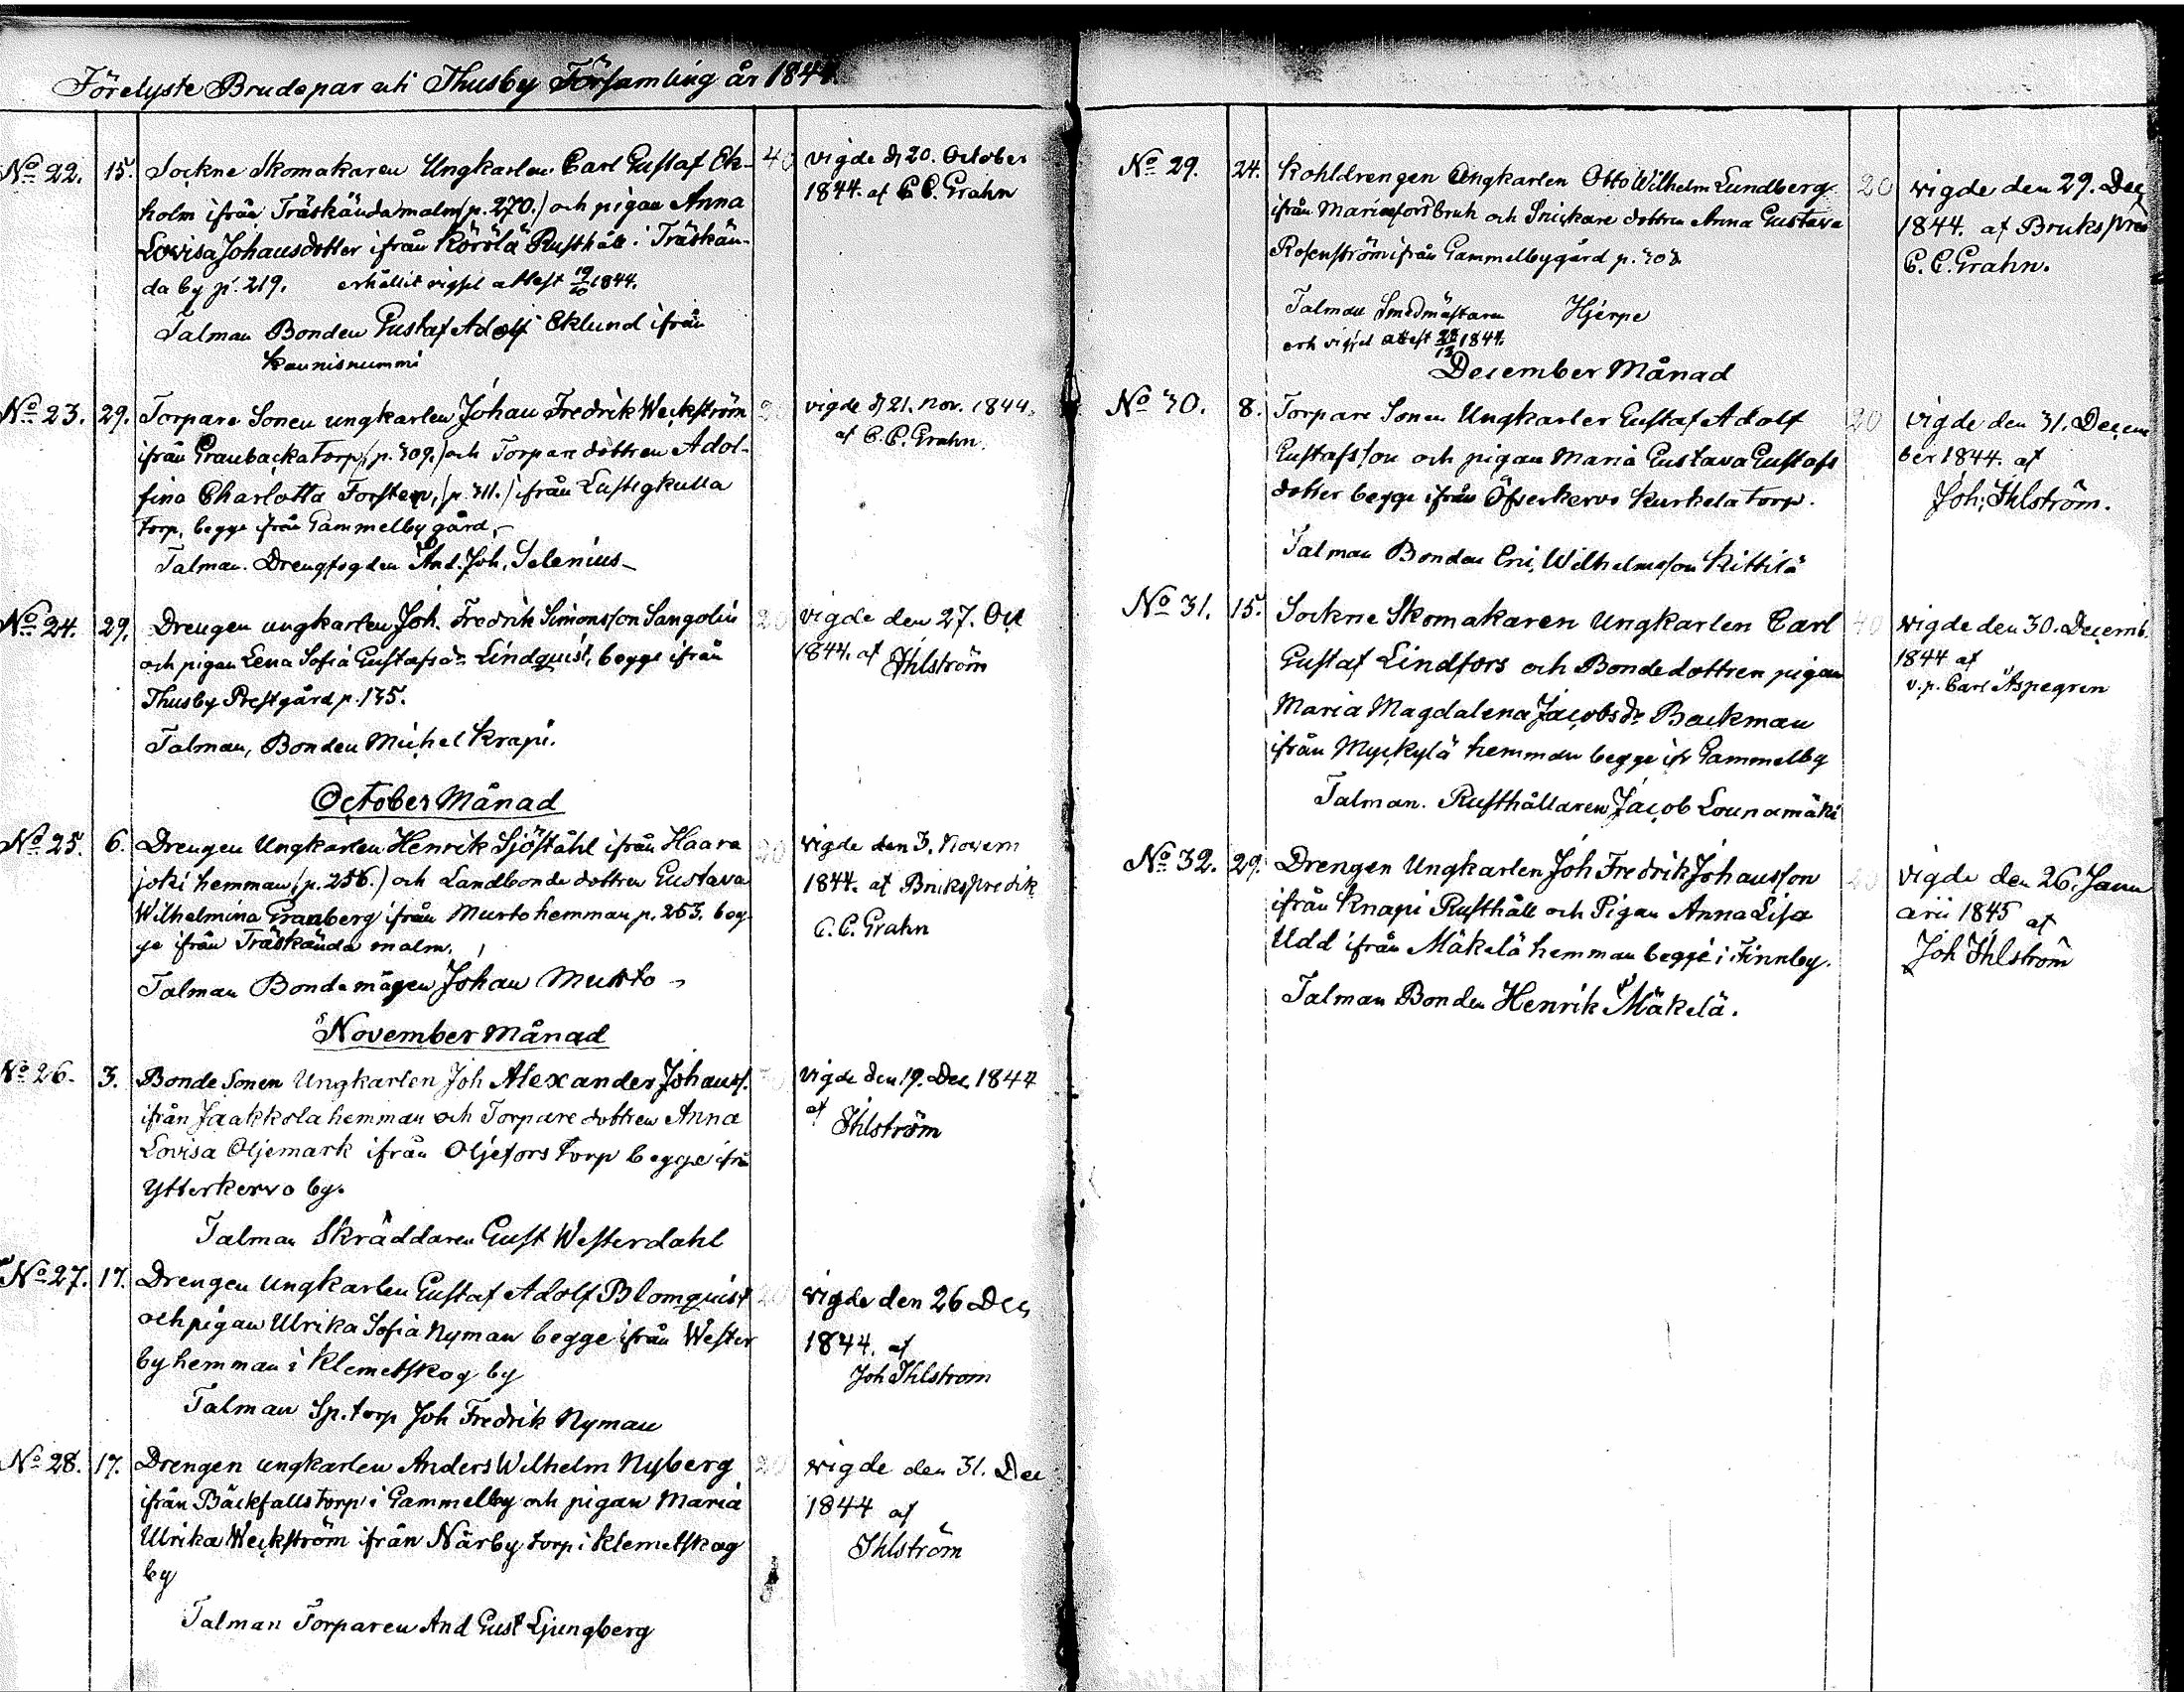 Förelyste Brudepar uti Thusby Församling år 1844.
No 22. 15. Sockne Skomakaren Ungkarlen Carl Gustaf Ek- 40 vigde d 20. October
holm ifrån Träskända malm (p. 270.) och pigan Anna 1844. af C. C. Grahn
Lovisa Johansdotter ifrån Körölä Rusthåll i Träskän-
da by p. 219. erhållit vigsel attest 19/10 1844.
Talman Bonden Gustaf Adolf Eklund ifrån
Kaunisnummi
No 23. 29. Torpare Sonen ungkarlen Johan Fredrik Weckström 20 vigde d 21. Nov. 1844.
ifrån Granbacka Torp, (p. 309.) och Torpare dottren Adol- af C. C. Grahn.
fina Charlotta Forsten, (p. 311.) ifrån Lustigkulla
torp, begge ifrån Gammelby gård,
Talman. Drengfogden And. Joh. Selenius
No 24. 29. Drengen ungkarlen Joh. Fredrik Simonsson Sangolin 20 vigde den 27. Oct
och pigan Lena Sofia Gustafs dr. Lindquist, begge ifrån 1844. af Ihlström
Thusby Prestgård p. 135.
Talman, Bonden Michel Krapi.
October Månad
No 25. 6. Drengen Ungkarlen Henrik Sjöståhl ifrån Haara 20 vigde den 3. Novem
joki hemman (p. 256.) och Landbonde dottren Gustava 1844. af Brukspredik
Wilhelmina Granberg ifrån Murto hemman p. 253. beg- C. C. Grahn
ge ifrån Träskända malm.
Talman Bonde mågen Johan Murto
November Månad
No 26. 3. Bonde Sonen Ungkarlen Joh Alexander Johanss. vigde den 19. Dec 1844
ifrån Jaakkola hemman och Torpare dottren Anna af Ihlström
Lovisa Oljemark ifrån Oljefors torp begge ifrå
Ytterkervo by.
Talman Skräddaren Gust Westerdahl
No 27. 17. Drengen Ungkarlen Gustaf Adolf Blomquist 20 vigde den 26 Dec
och pigan Ulrika Sofia Nyman begge ifrån Wester 1844. af
by hemman i Klemetskog by Joh Ihlström
Talman Sp. torp Joh Fredrik Nyman
No 28. 17. Drengen ungkarlen Anders Wilhelm Nyberg 20 vigde den 31. Dec
ifrån Bäckfalls torp i Gammelby och pigan Maria 1844 af
Ulrika Weckström ifrån Närby torp i Klemetskog Ihlström
by
Talman Torparen And Gust Ljungberg
No 29. 24. Kohldrengen Ungkarlen Otto Wilhelm Lundberg 20 vigde den 29. Dec
ifrån Mariæfors bruk och Snickare dottren Anna Gustava 1844. af Brukspred
Rosenström ifrån Gammelby gård p. 303. C. C. Grahn.
Talman Smedmästaren Hjerpe
erh vigsel attest 28/12 1844.
December Månad
No 30. 8. Torpare Sonen Ungkarlen Gustaf Adolf 20 vigde den 31. Decem
Gustafsson och pigan Maria Gustava Gustafs ber 1844. af
dotter begge ifrån Öfverkervo Kurkela torp. Joh. Ihlström.
Talman Bonden Eric Wilhelmsson Kittilä
No 31. 15. Sockne Skomakaren Ungkarlen Carl 40 vigde den 30. Decemb.
Gustaf Lindfors och Bondedottren pigan 1844 af
Maria Magdalena Jacobs dr Backman v. p. Carl Aspegren
ifrån Myckylä hemman begge ifr Gammelby
Talman. Rusthållaren Jacob Lounamäki
No 32. 29. Drengen Ungkarlen Joh Fredrik Johansson 20 vigde den 26. Janu
ifrån Knapi Rusthåll och Pigan Anna Lisa arii 1845 af
Udd ifrån Mäkelä hemman begge i Finnby. Joh Ihlström
Talman Bonden Henrik Mäkelä.